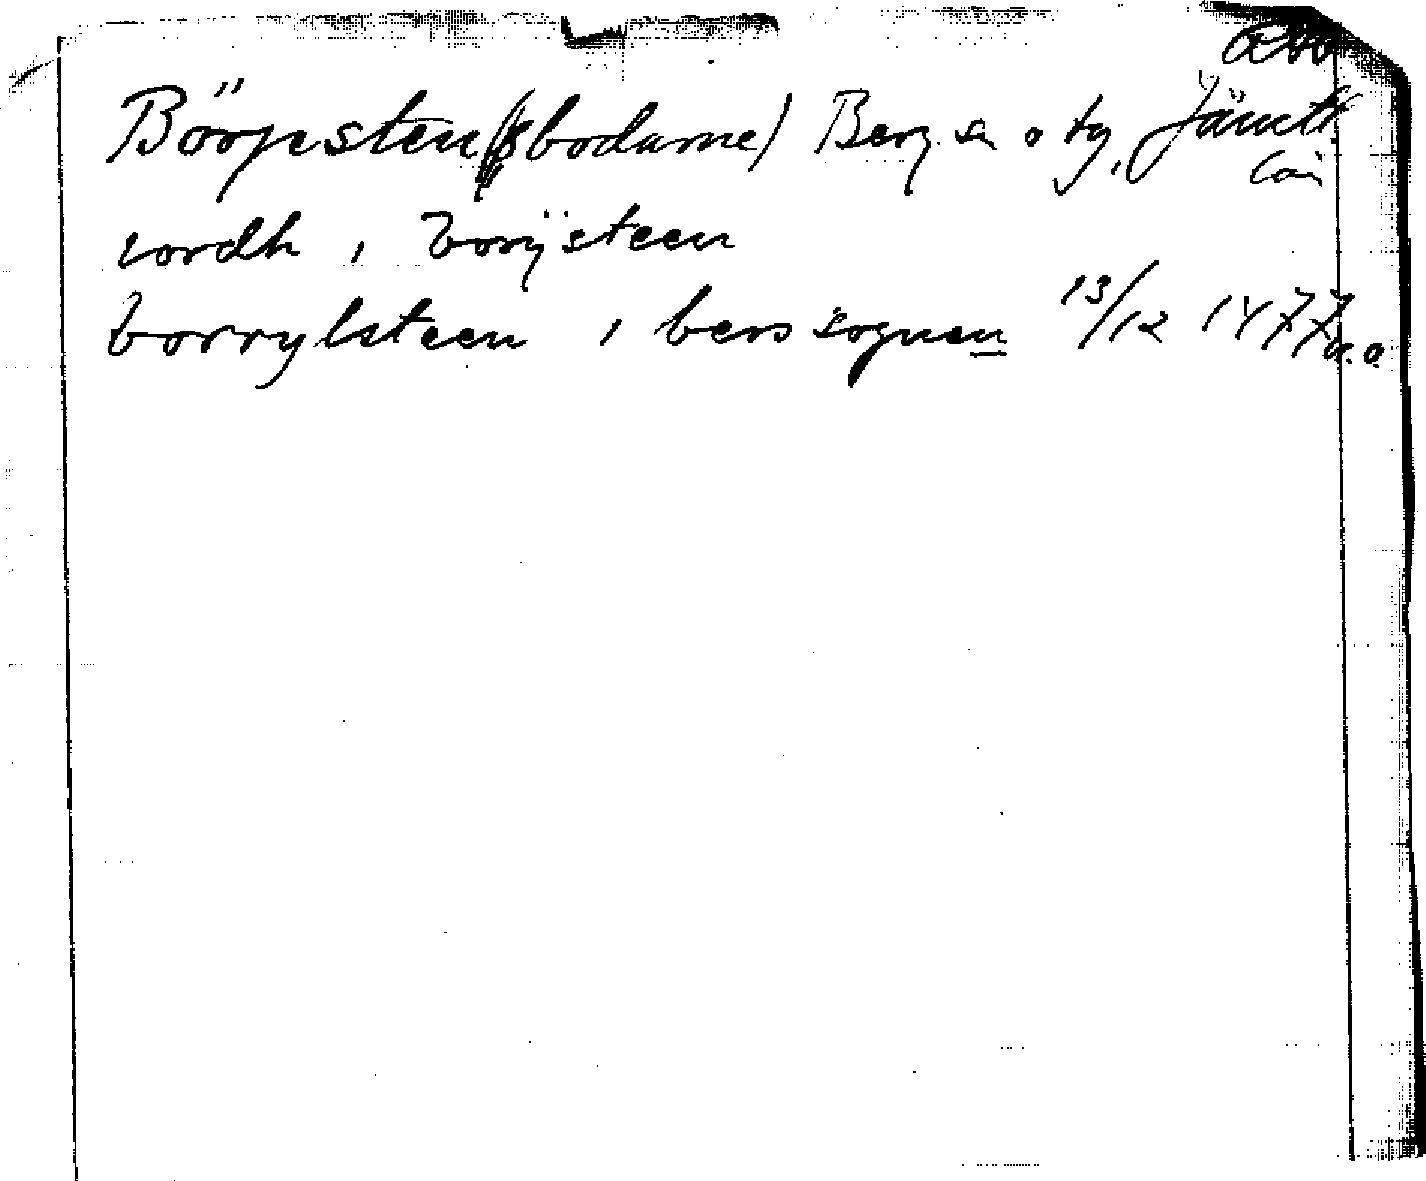 Börpsten (bodarne) Berg sn o tg, Jämtl
län
iordh i borÿsteen
borrylsteen i bers sognen 13/12 1477
a.o.